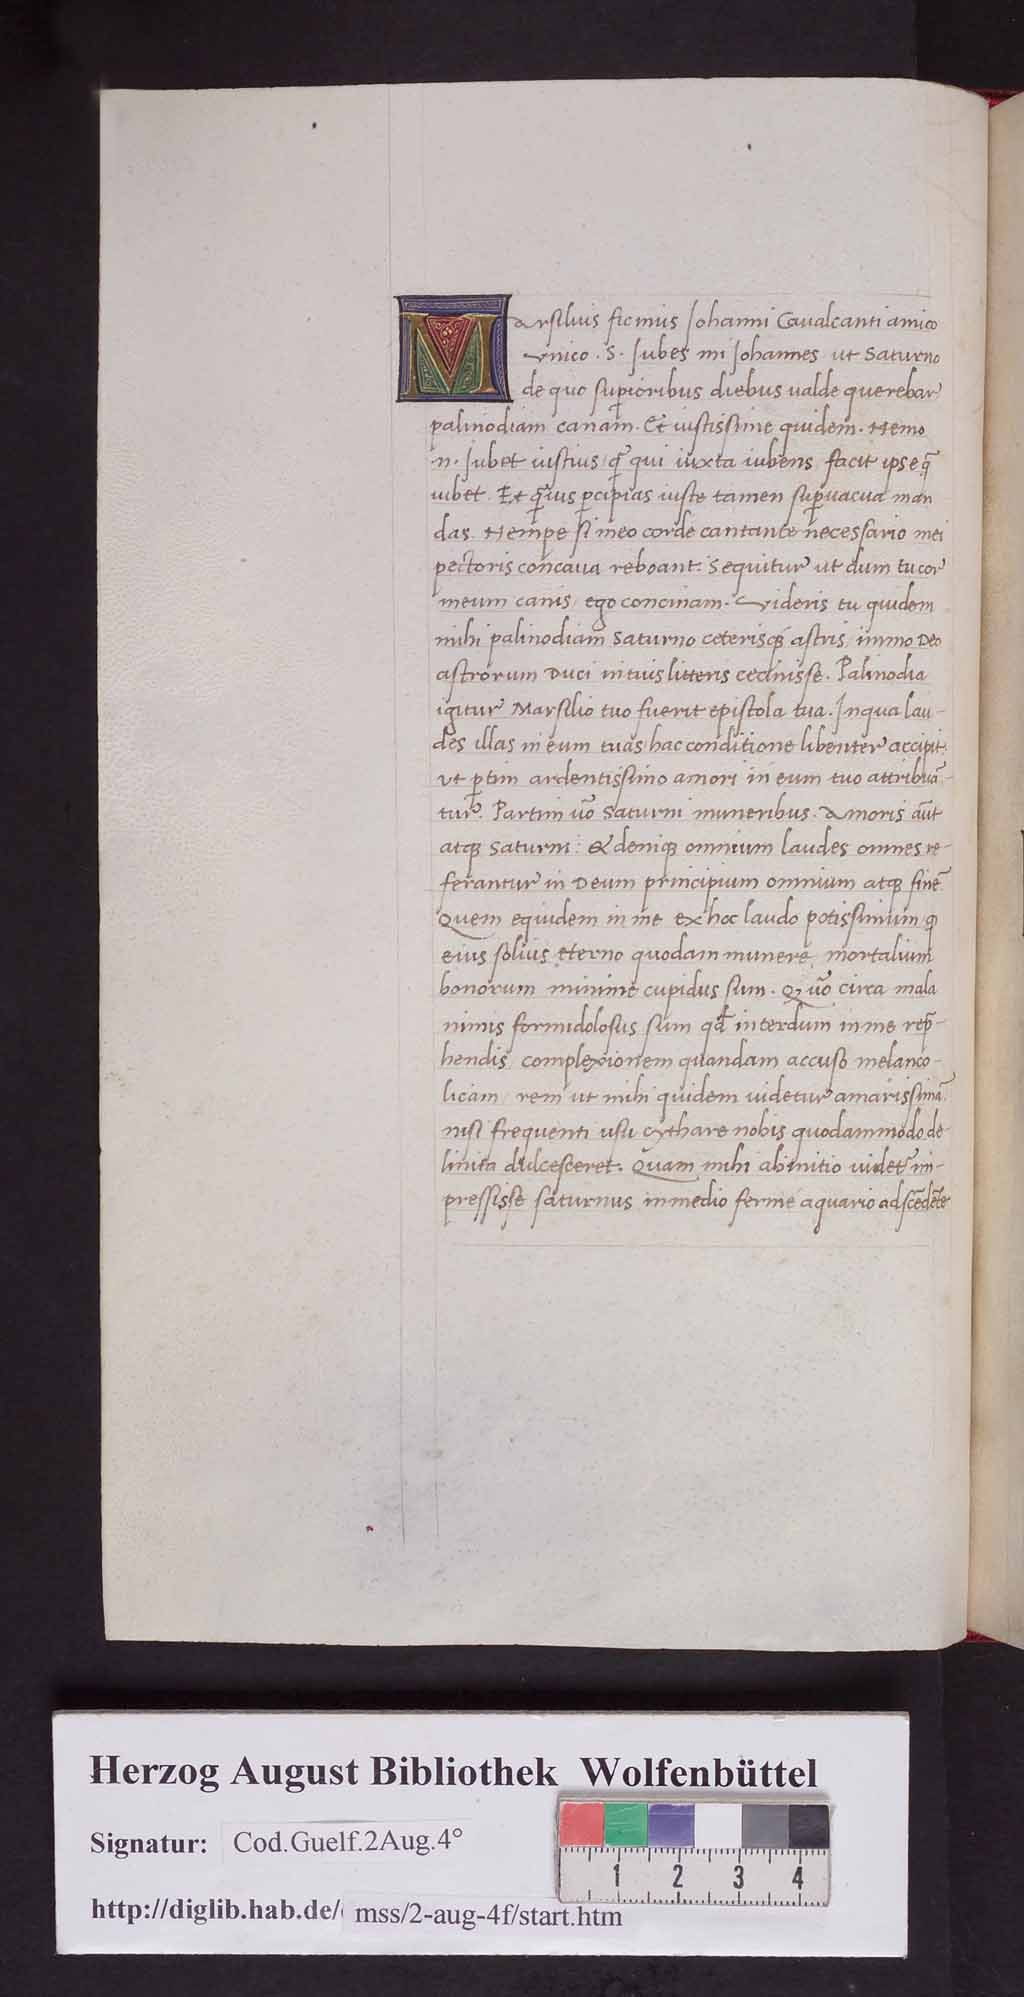 Marsilius ficinus Johanni Caualcanti amico
vnico. S. Jubes mi Johannes ut Saturno
de quo supioribus diebus ualde querebar
palinodiam canam. Et iustissime quidem. Nemo
.n. Jubet iustius / q̃ qui iuxta iubens facit ipse q̃
iubet. Et q̃uis p̱cipias iuste tamen sup̱uacua man
das. Nempe si meo corde cantante necessario mei
pectoris concaua reboant: Sequitur ut dum tu cor
meum canis / ego concinam. Videris tu quidem
mihi palinodiam Saturno ceterisq; astris / immo Deo
astrorum Duci in tuis litteris cecinisse. Palinodia
igitur Marsilio tuo fuerit epistola tua. In qua lau-
des illas in eum tuas hac conditione libenter accipit.
vt p̱tim ardentissimo amori in eum tuo attribuã-
tur. Partim uõ Saturni muneribus. Amoris aũt
atq; Saturni: & deniq; omnium laudes omnes re-
ferantur in Deum principium omnium atq; finẽ
Quem equidem in me ex hoc laudo potissimum q̱
eius solius eterno quodam munere mortalium
bonorum minime cupidus sum. Q uõ circa mala
nimis formidolosus sum qđ interdum in me rep̃-
hendis / complexionem quandam accuso melanco-
licam / rem ut mihi quidem uidetur amarissimã
nisi frequenti usu cythare nobis quodammodo de-
linita dulcesceret. Quam mihi ab initio uidet' im-
pressisse saturnus in medio ferme aquario adscẽdẽte
Herzog August Bibliothek Wolfenbüttel
Signatur: Cod.Guelf.2Aug.4°
1 2 3 4
http://diglib.hab.de/ mss/2-aug-4f/start.htm